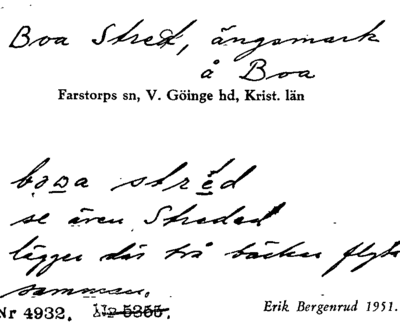 Boa Stred, ängsmark
å Boa
Farstorps sn, V. Göinge hd, Krist. län
bo̲a strẹ́d
se även Stredad
ligger där två bäckar flyta
samman.
Nr 4932. No 5355.
Erik Bergenrud 1951.